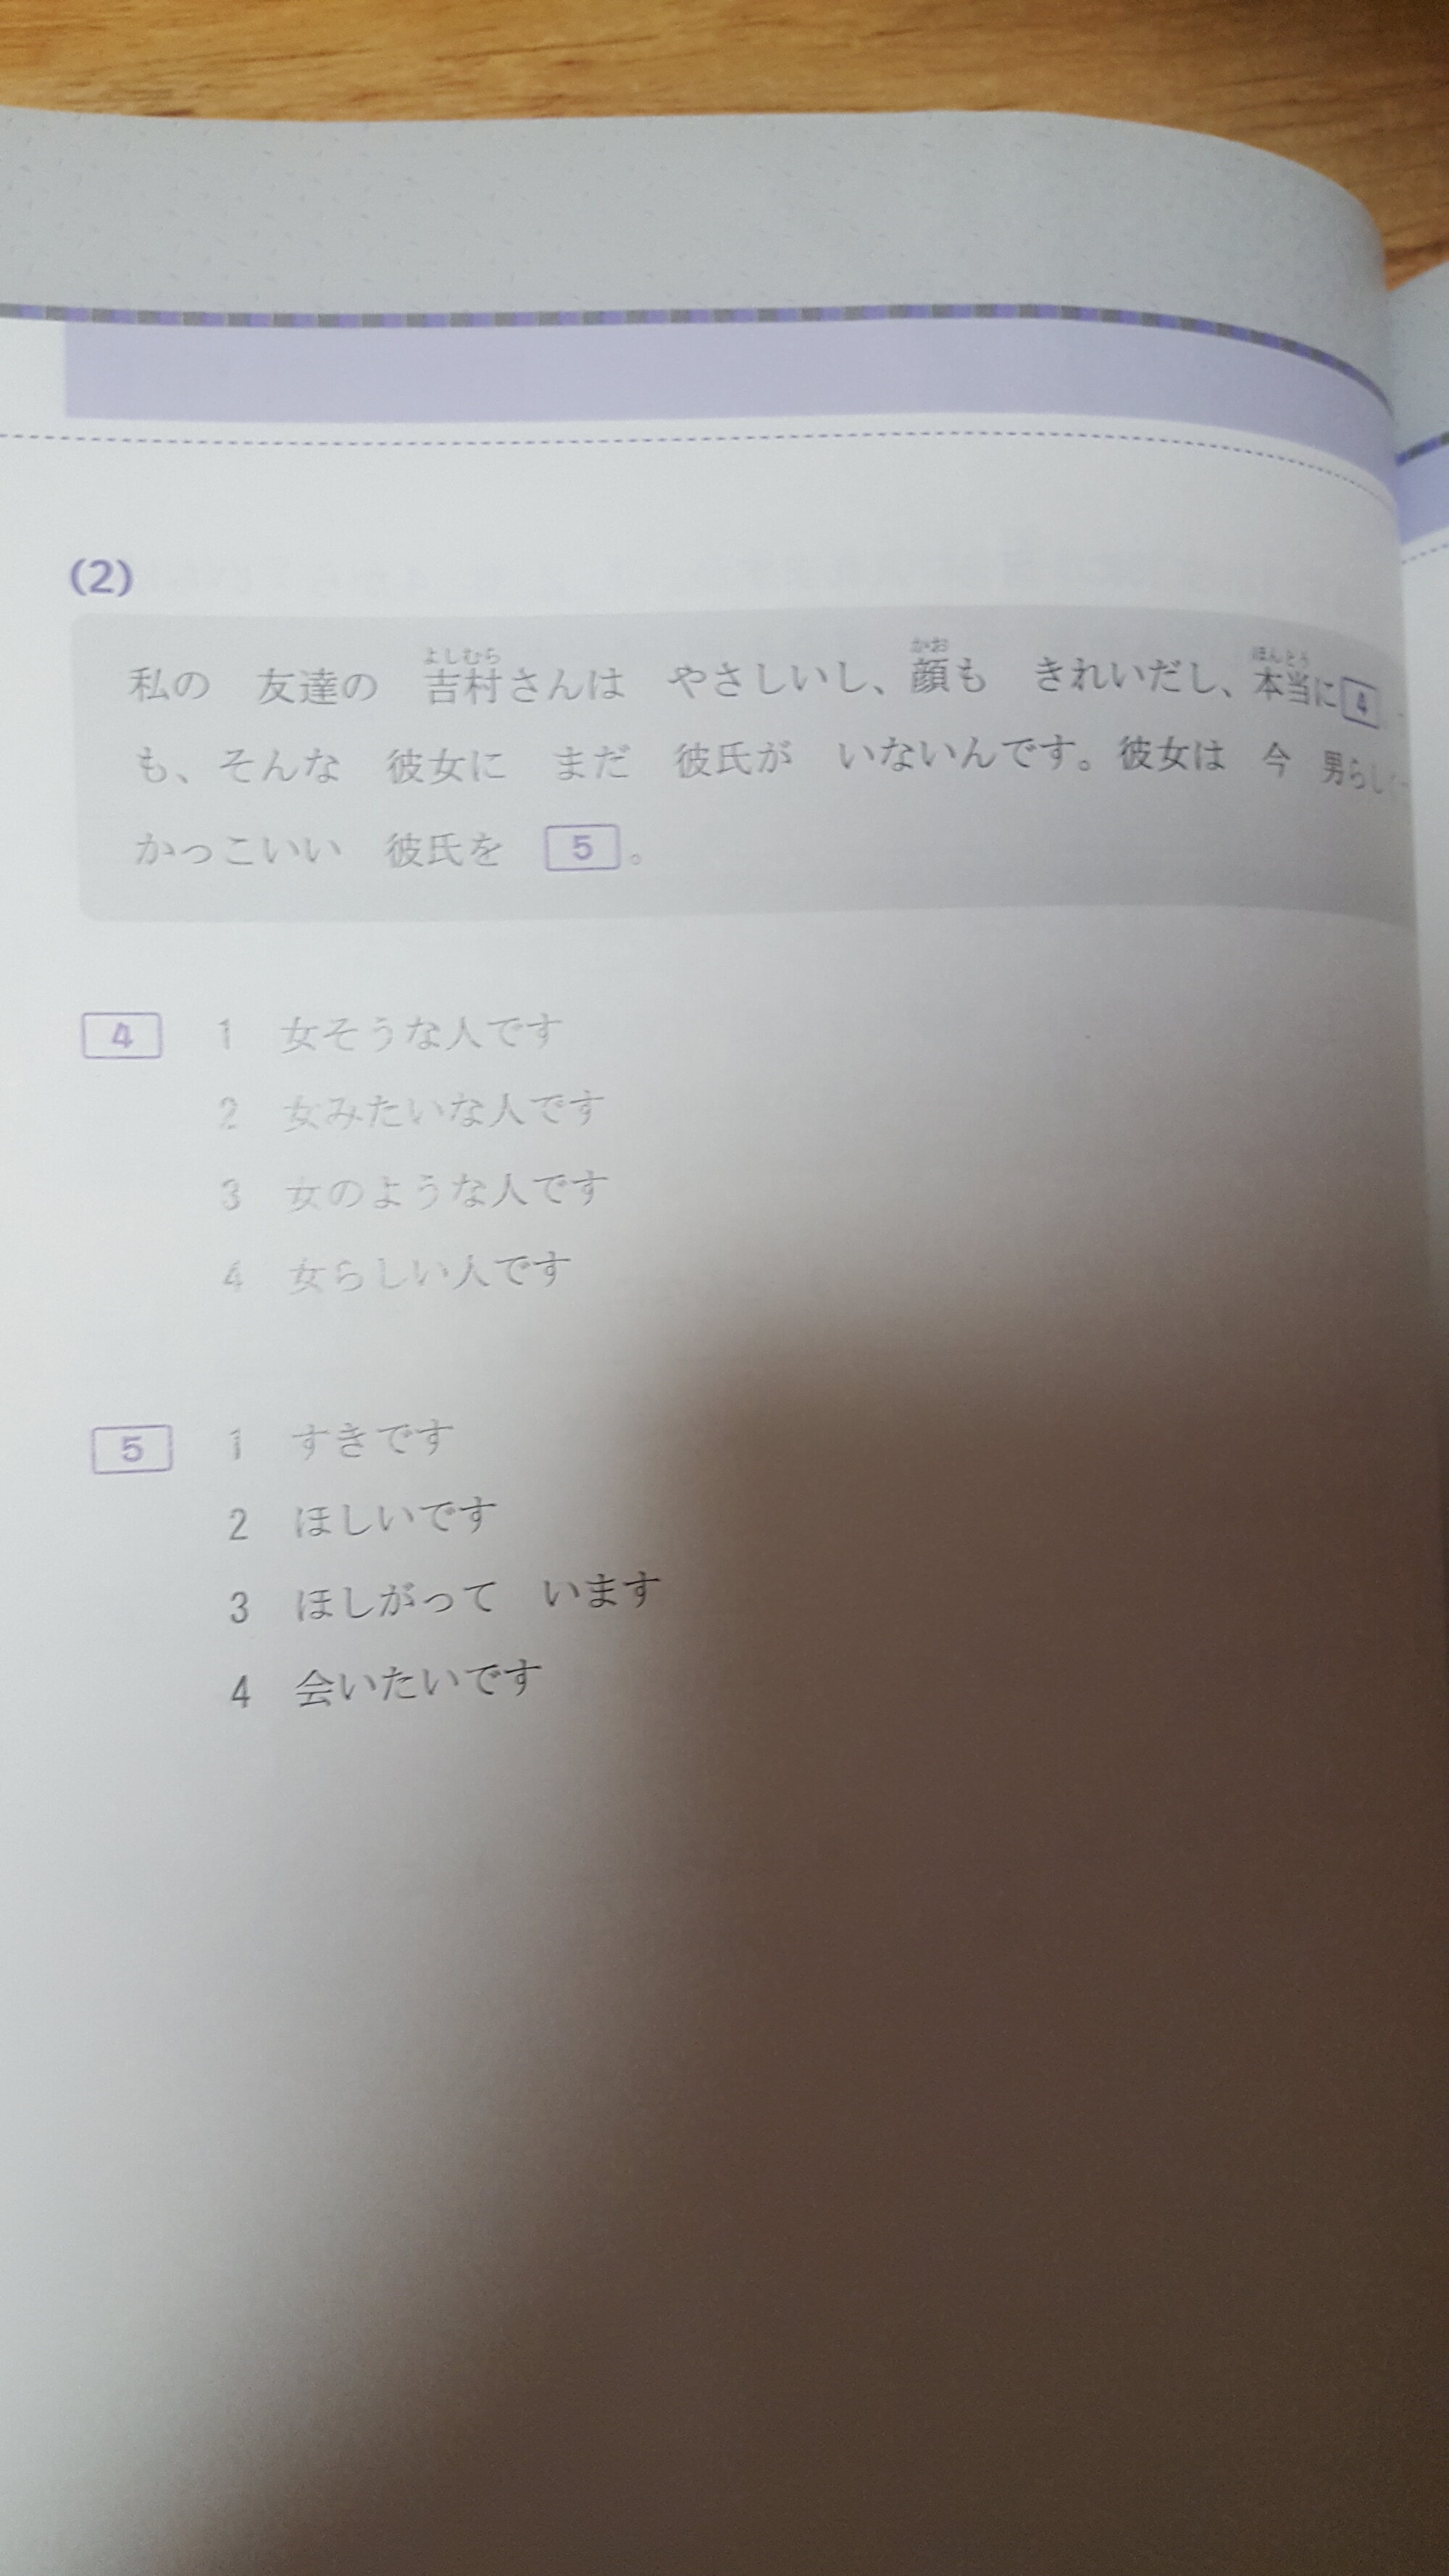 (2)
私の 友達の 吉村さんは やさしいし、顔も きれいだし、本当に 4
も、そんな 彼女に まだ 彼氏が いないんです。彼女は 今 男らしくて
かっこいい 彼氏を 5 。
4 1 女そうな人です
2 女みたいな人です
3 女のような人です
4 女らしい人です
5 1 すきです
2 ほしいです
3 ほしがって います
4 会いたいです